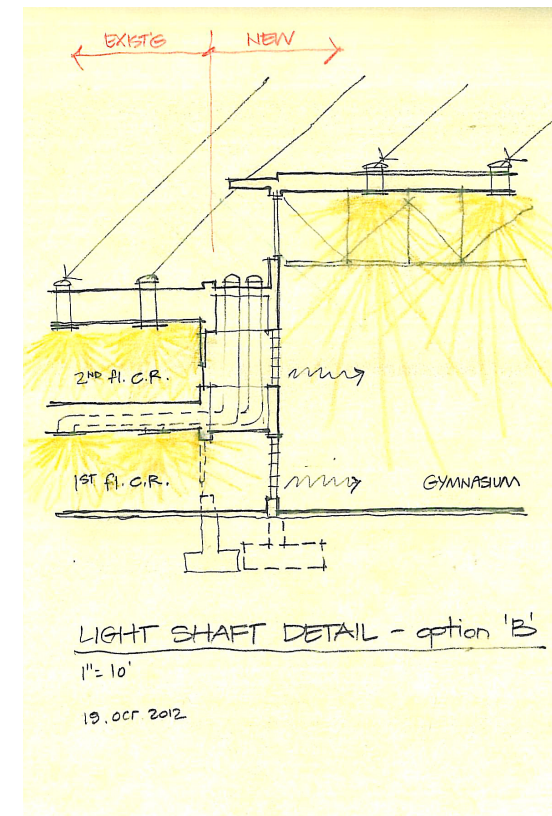 EXIST'G NEW
2ND fl. C.R.
1ST fl. C.R. GYMNASIUM
LIGHT SHAFT DETAIL - option 'B'
1"= 10'
19. OCT 2012